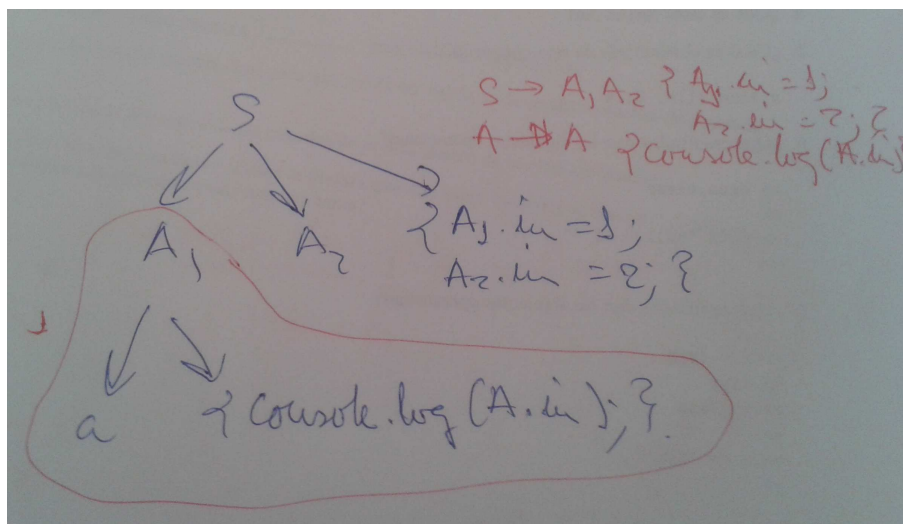 S → A₁ A₂ { A₁.in = 1;
A₂.in = 2; }
A → A {console.log(A.in)
S
A₁ A₂ { A₁.in = 1;
A₂.in = 2; }
1
a {console.log(A.in);}